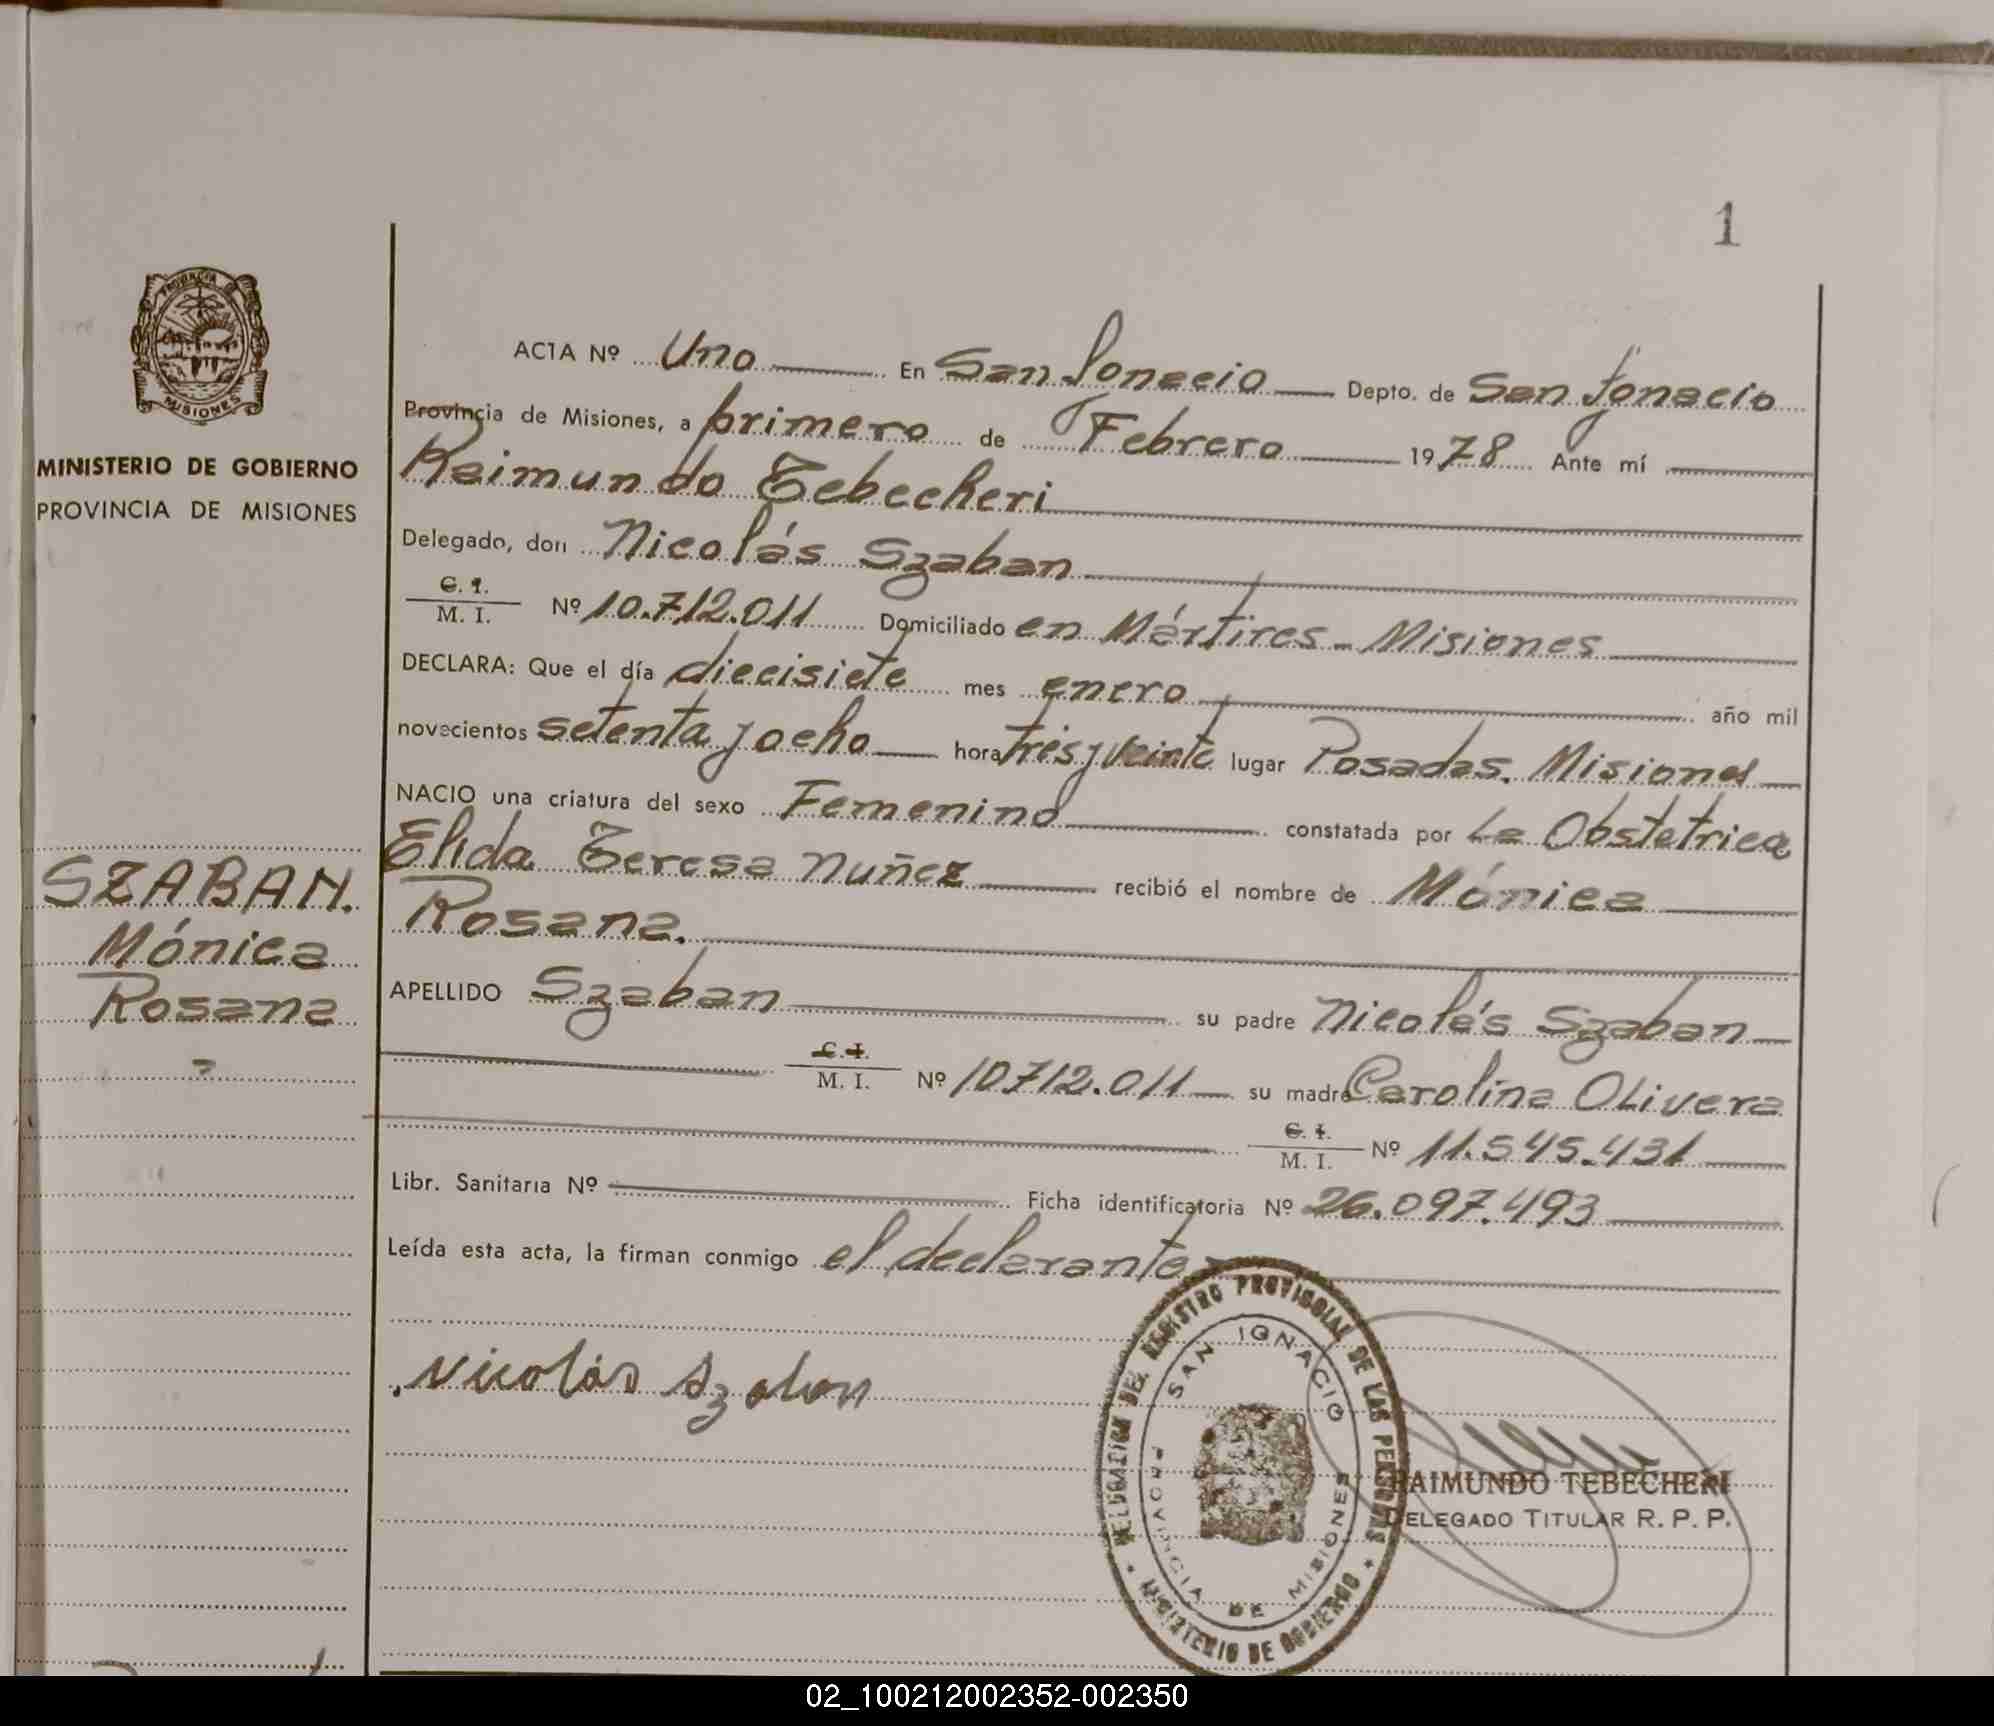 1
PROVINCIA DE
MISIONES
MINISTERIO DE GOBIERNO
PROVINCIA DE MISIONES
SZABAN.
Mónica
Rosana
ACTA Nº Uno En San Ignacio Depto. de San Ignacio
Provincia de Misiones, a primero de Febrero 1978 Ante mí
Raimundo Tebecheri
Delegado, don Nicolás Szaban
C. I.
M. I. Nº 10.712.011 Domiciliado en Mártires - Misiones
DECLARA: Que el día diecisiete mes enero año mil
novecientos setenta y ocho hora tres y veinte lugar Posadas. Misiones
NACIO una criatura del sexo Femenino constatada por La Obstetrica
Elida Teresa Nuñez recibió el nombre de Mónica
Rosana.
APELLIDO Szaban su padre Nicolás Szaban
C. I.
M. I. Nº 10.712.011 su madre Carolina Olivera
C. I.
M. I. Nº 11.545.431
Libr. Sanitaria Nº Ficha identificatoria Nº 26.097.493
Leída esta acta, la firman conmigo el declarante
Nicolás Szaban
DELEGACION DEL REGISTRO PROVINCIAL DE LAS PERSONAS
SAN IGNACIO
PROVINCIA DE MISIONES
MINISTERIO DE GOBIERNO
RAIMUNDO TEBECHERI
DELEGADO TITULAR R. P. P.
02_100212002352-002350